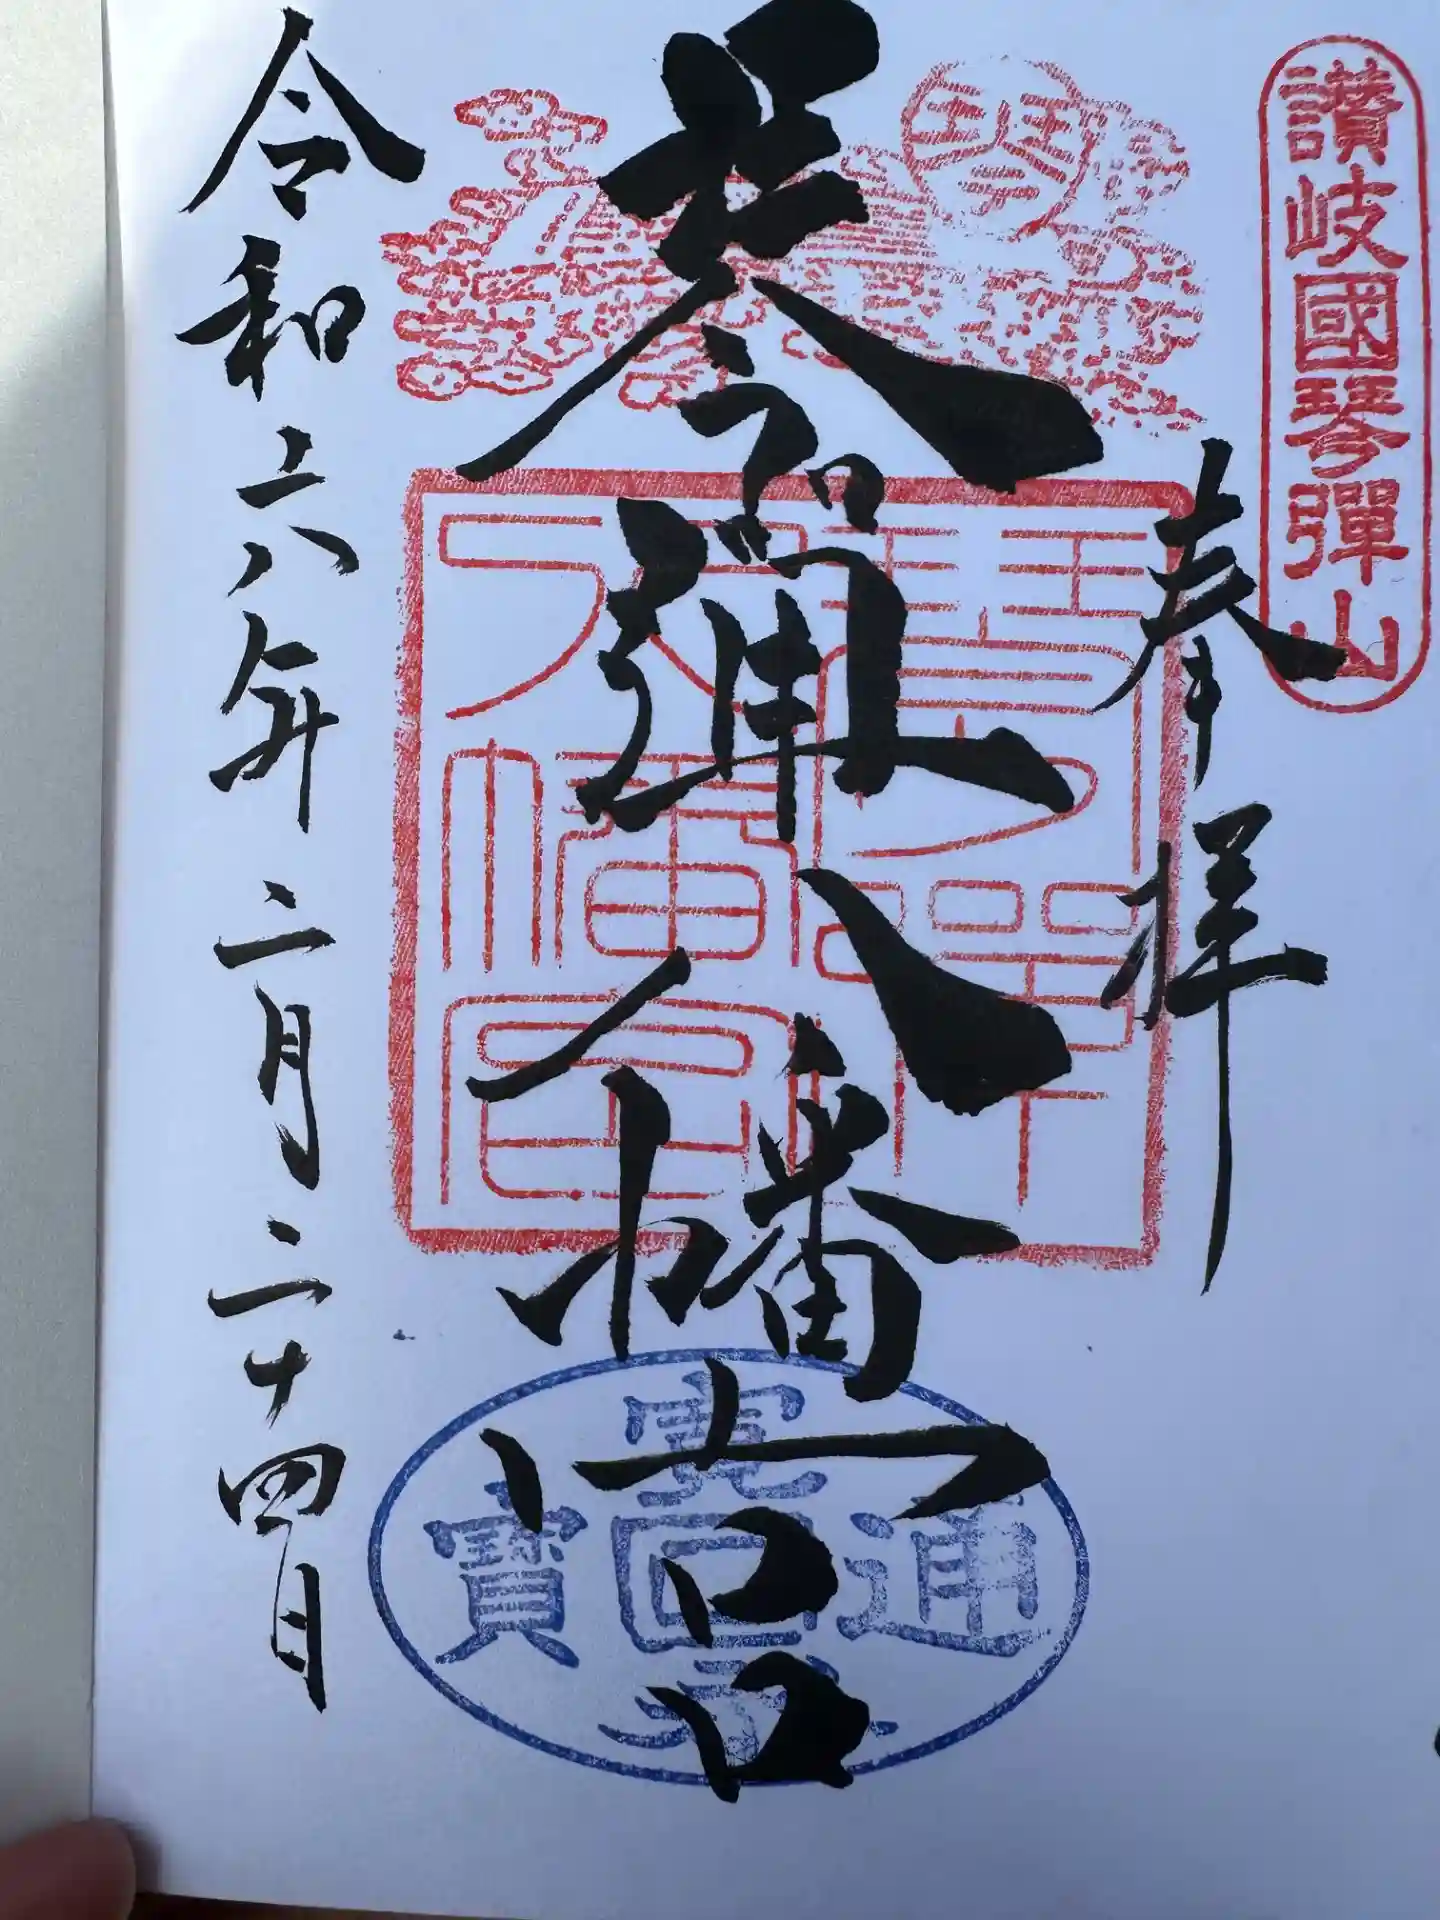 讃岐國琴彈山
奉拝
琴弾八幡宮
琴彈八幡宮
寛永通寳
令和六年二月二十四日